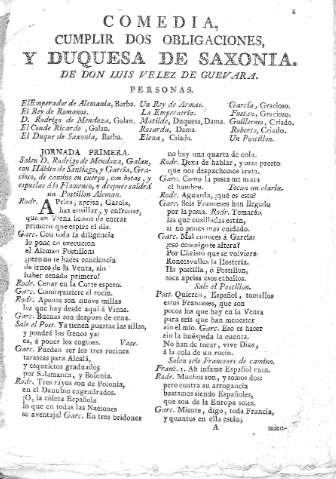 COMEDIA,
CUMPLIR DOS OBLIGACIONES,
Y DUQUESA DE SAXONIA.
DE DON LUIS VELEZ DE GUEVARA.
PERSONAS.
El Emperador de Alemania, Barba.
El Rey de Romanos.
D. Rodrigo de Mendoza, Galan.
El Conde Ricardo, Galan.
El Duque de Saxonia, Barba.
Un Rey de Armas.
La Emperatriz.
Matilde, Duquesa, Dama.
Rosarda, Dama.
Elena, Criada.
Garcia, Gracioso.
Guillermo, Criado.
Roberto, Criado.
Un Postillon.
JORNADA PRIMERA.
Salen D. Rodrigo de Mendoza, Galan,
con Hábito de Santiago, y Garcia, Gra-
cioso, de camino en cuerpo, con botas, y
espuelas á lo Flamenco, y despues saldrá
un Postillon Aleman.
Rodr. Apriesa, apriesa, Garcia,
haz ensillar, y enfrenar,
que en Viena hemos de entrar
primero que espire el dia.
Garc. Con toda la diligencia
lo pone en execucion
el Aleman Postillon:
pero no te haces conciencia
de irnos de la Venta, sin
haber cenado primero?
Rodr. Cenar en la Corte espero.
Rodr. Apenas son nueve millas
las que hay desde aquí á Viena.
Garc. Buenas son despues de cena.
Sale el Post. Ya tienen puestas las sillas,
y pondrá los frenos ya:
ea, á poner los cogines. Vase.
Garc. Pueden ser los tres rocines
tarascas para Alcalá,
y esqueletos graduados
por Salamanca, y Bolonia.
Rodr. Tres rayos son de Polonia,
en el Danubio engendrados.
¡O, la cólera Española
lo que en todas las Naciones
se aventaja! Garc. En tres bridones
no hay una quarta de cola.
Rodr. Dexa de hablar, y mas presto
que nos despachemos trata.
Garc. Como la posta me mata
el hombre. Tocan un clarin.
Rodr. Aguarda, ¿qué es esto?
Garc. Seis Franceses han llegado
por la posta. Rodr. Tomarán
las que ensilladas están,
si no pones mas cuidado.
Garc. Mal conoces á Garcia:
¿eso consigo te altera?
Por Christo que se volviera
Roncesvalles la Hosteria.
Ha postilla, ó Postillon,
saca aprisa esos caballos.
Sale el Postillon.
Post. Quieren, Español, tomallos
estos Franceses, que son
pocos los que hay en la Venta
para seis que han menester
sin el mio. Garc. Eso es hacer
sin la huéspeda la cuenta.
No han de tocar, vive Dios,
á la cola de un rocin.
Salen seis Franceses de camino.
Franc. 1. Ah infame Español ruin.
Rodr. Muchos son, y somos dos:
pero contra su arrogancia
bastamos siendo Españoles,
que son de la Europa soles.
Garc. Miente, digo, toda Francia,
y quantos en ella están;
A
mien-